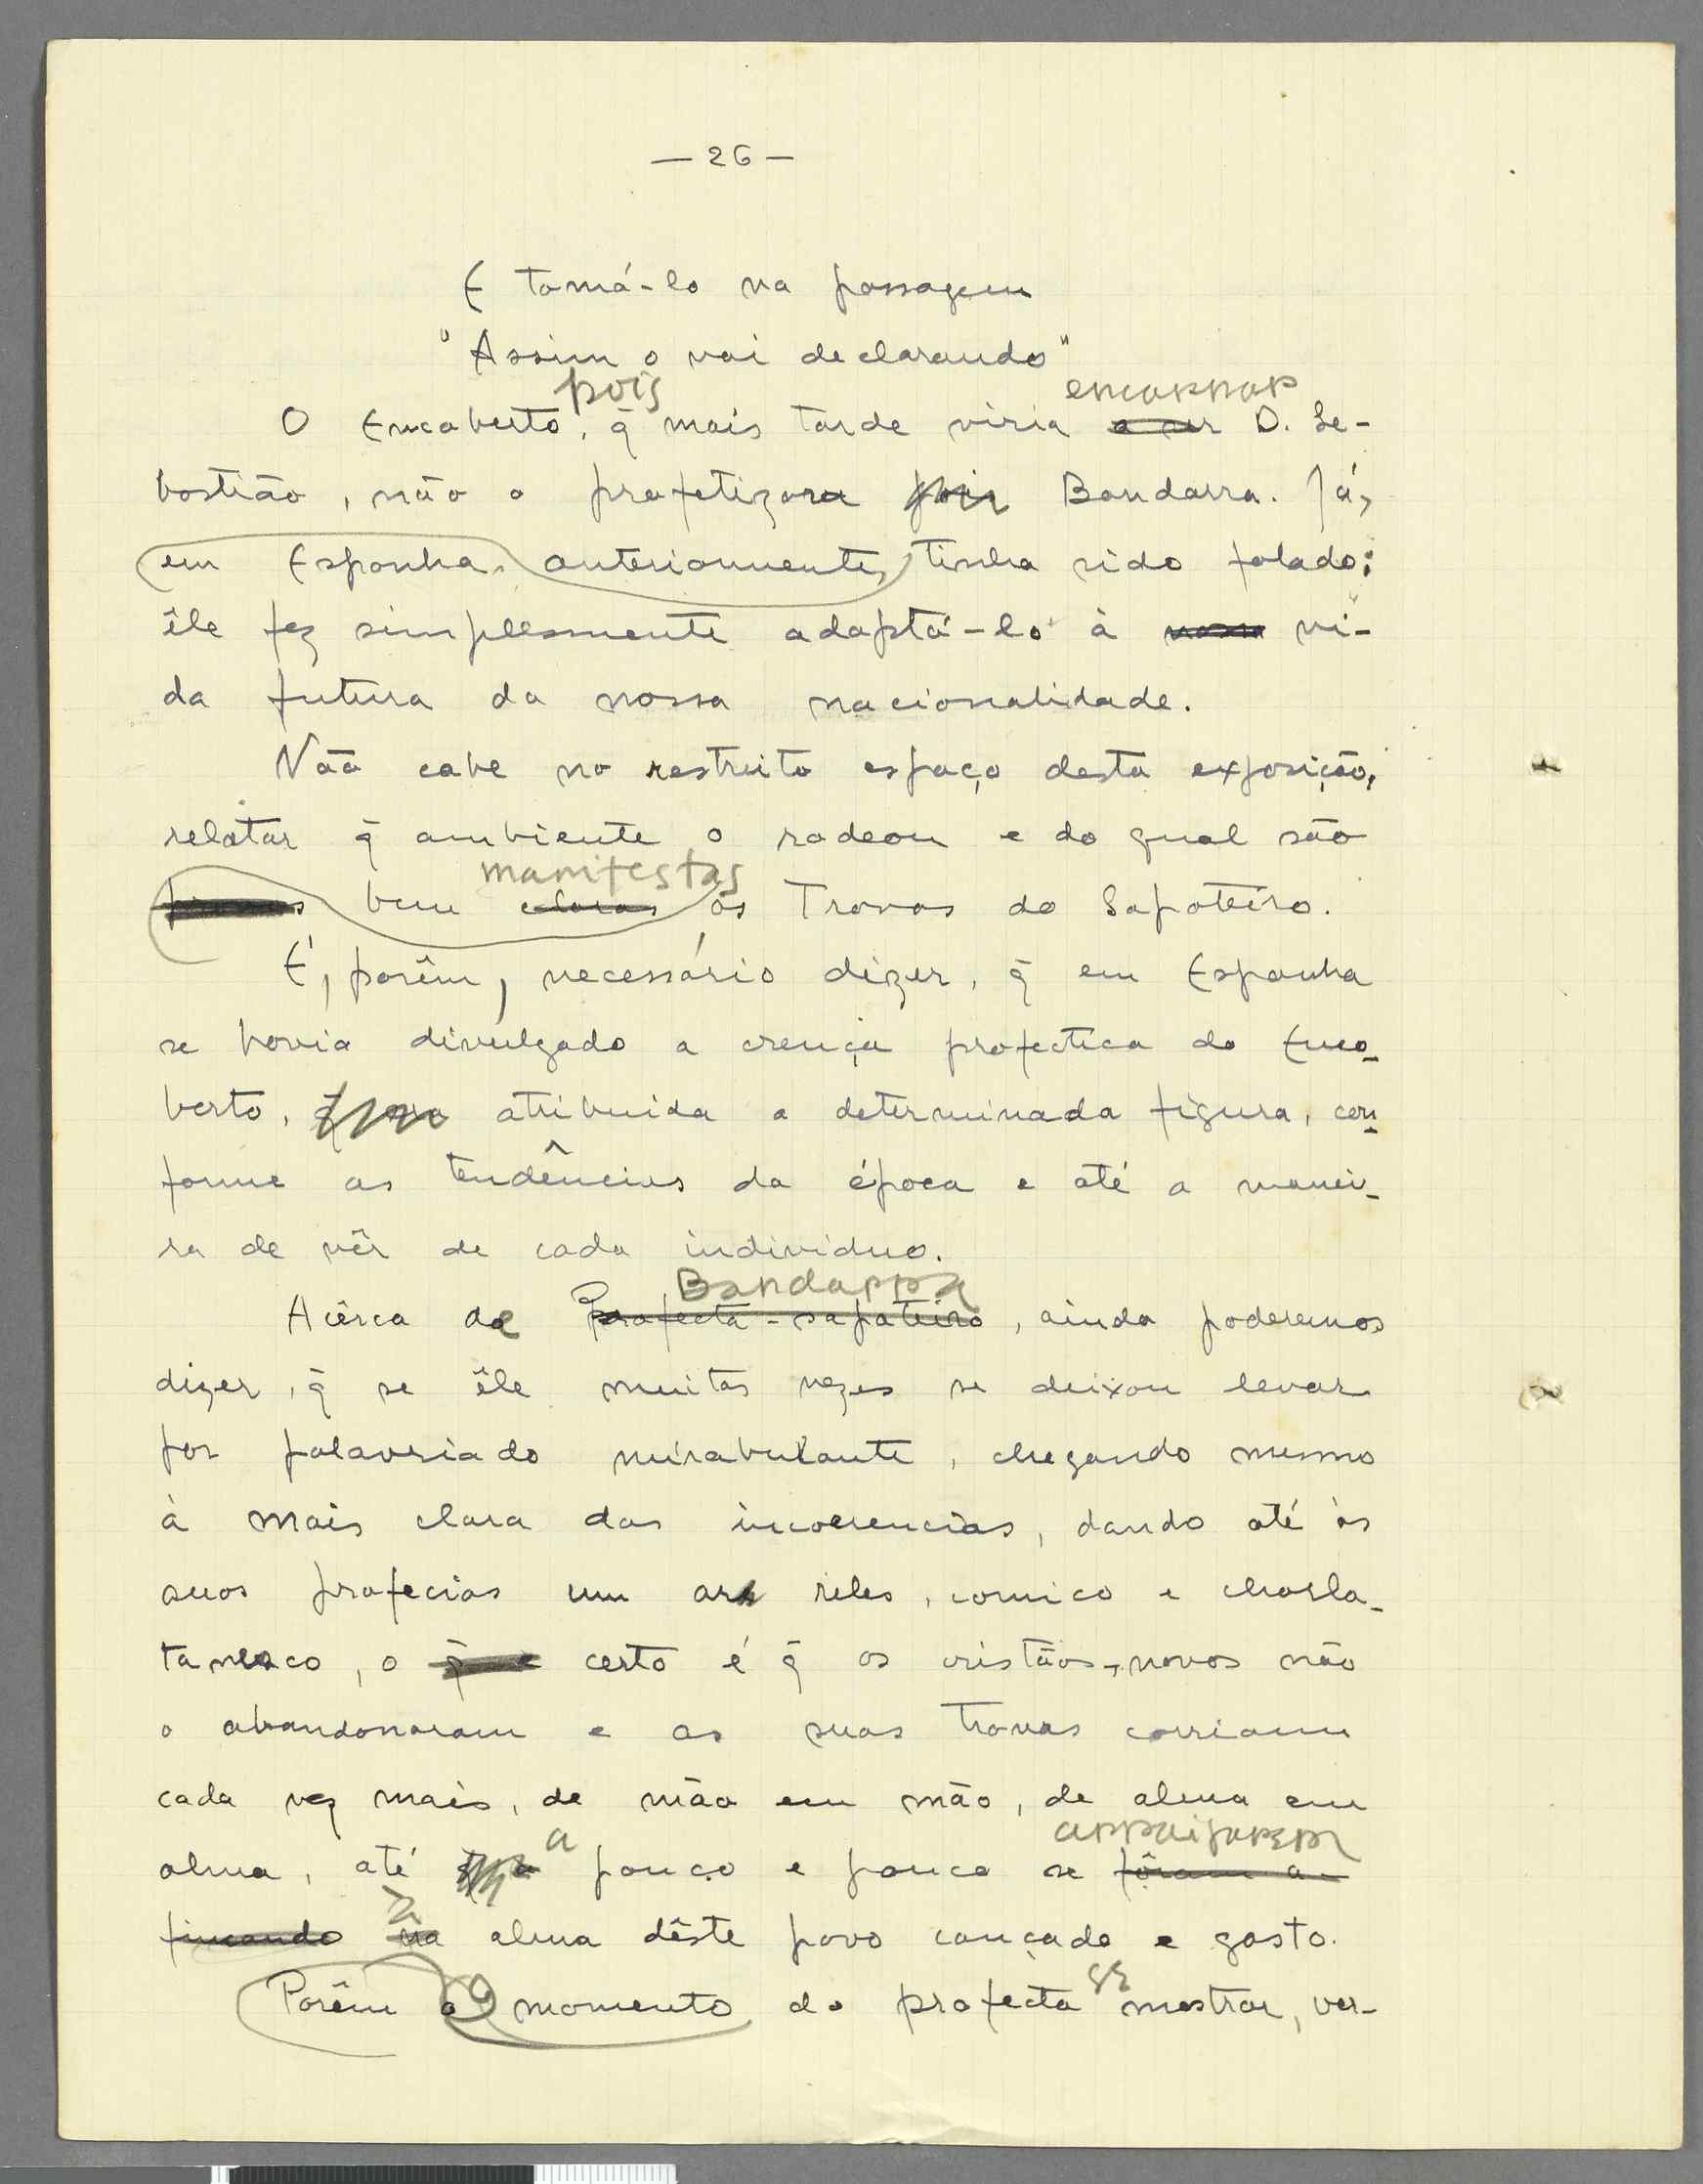 — 26 —
E tomá-lo na passagem
"Assim o vai declarando"
pois encarnar
O Encoberto, q̃ mais tarde viria a ser D. Se-
bastião, não o profetizara pois Bandarra. Já,
em Espanha, anteriormente, tinha sido falado;
êle fez simplesmente adaptá-lo à nossa vi-
da futura da nossa nacionalidade.
Não cabe no restrito espaço desta exposição,
relatar q̃ ambiente o rodeou e do qual são
manifestas
bem claras as Trovas do Sapateiro.
É, porêm, necessário dizer, q̃ em Espanha
se havia divulgado a crença profectica do Enco-
berto, atribuida a determinada figura, con-
forme as tendências da época e até a manei-
ra de vêr de cada individuo.
Bandarra
Acêrca de Profecta-sapateiro, ainda poderemos
dizer, q̃ se êle muitas vezes se deixou levar
por palavriado mirabulante, chegando mesmo
à mais clara das incoerencias, dando até às
suas profecias um ar reles, comico e charla-
tanesco, o certo é q̃ os cristãos-novos não
o abandonaram e as suas trovas corriam
cada vez mais, de mão em mão, de alma em
a arraigarem
alma, até pouco e pouco se fôram a-
fincando na alma dêste povo cançado e gasto.
se
Porêm o momento do profecta mostrar, ver-